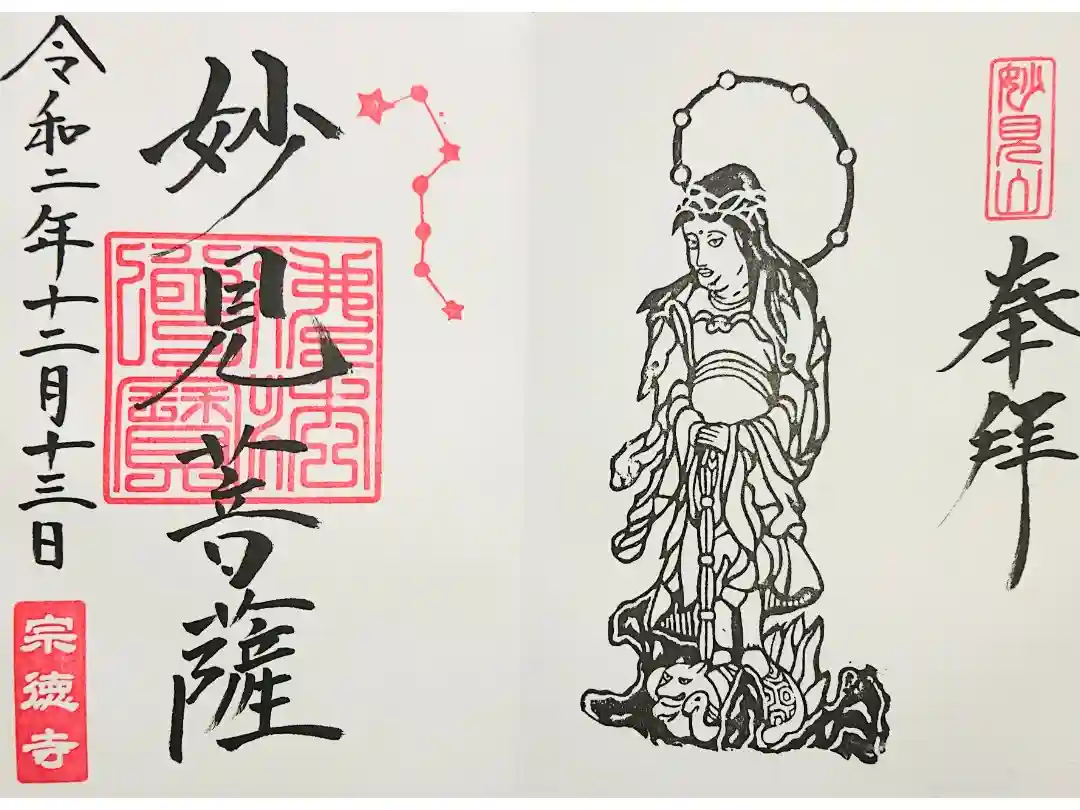 妙見山
奉拝
妙見菩薩
佛法僧寳
令和二年十二月十三日
宗徳寺